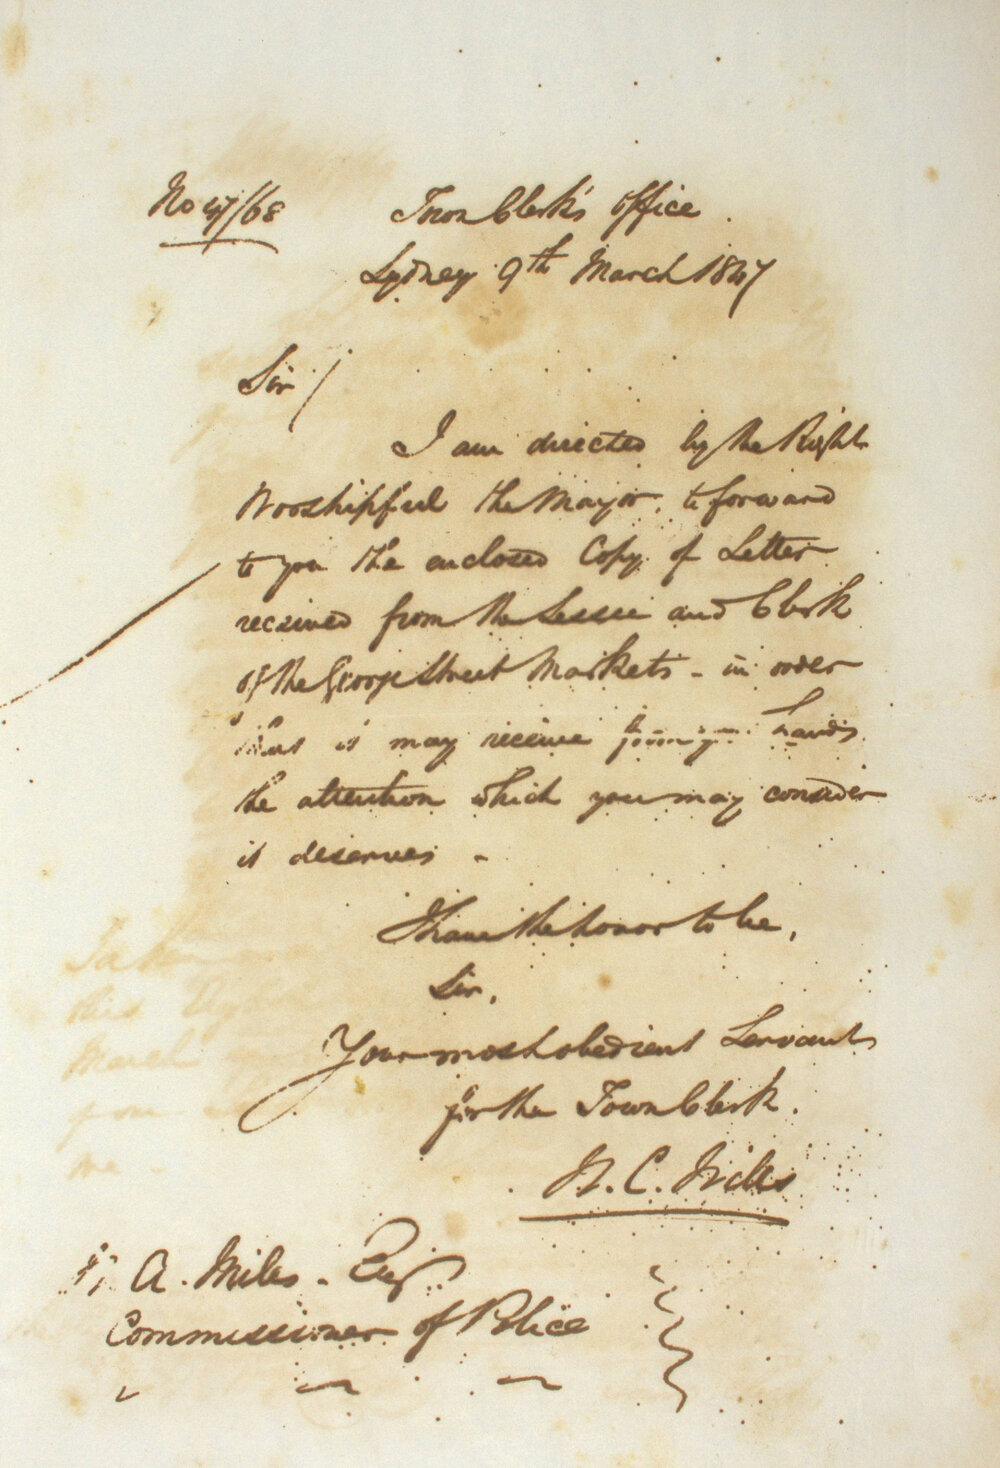 No 47/68
Town Clerk's Office
Sydney 9th March 1847
Sir/
I am directed by the Right
Worshipful the Mayor, to forward
to you the enclosed Copy of Letter
received from the Lessee and Clerk
of the George Street Markets - in order
that it may receive from your hands
the attention which you may consider
it deserves -
I have the honor to be,
Sir,
Your most obedient Servant
for the Town Clerk.
W. C. Wills
A. Miles. Esq
Commissioner of Police